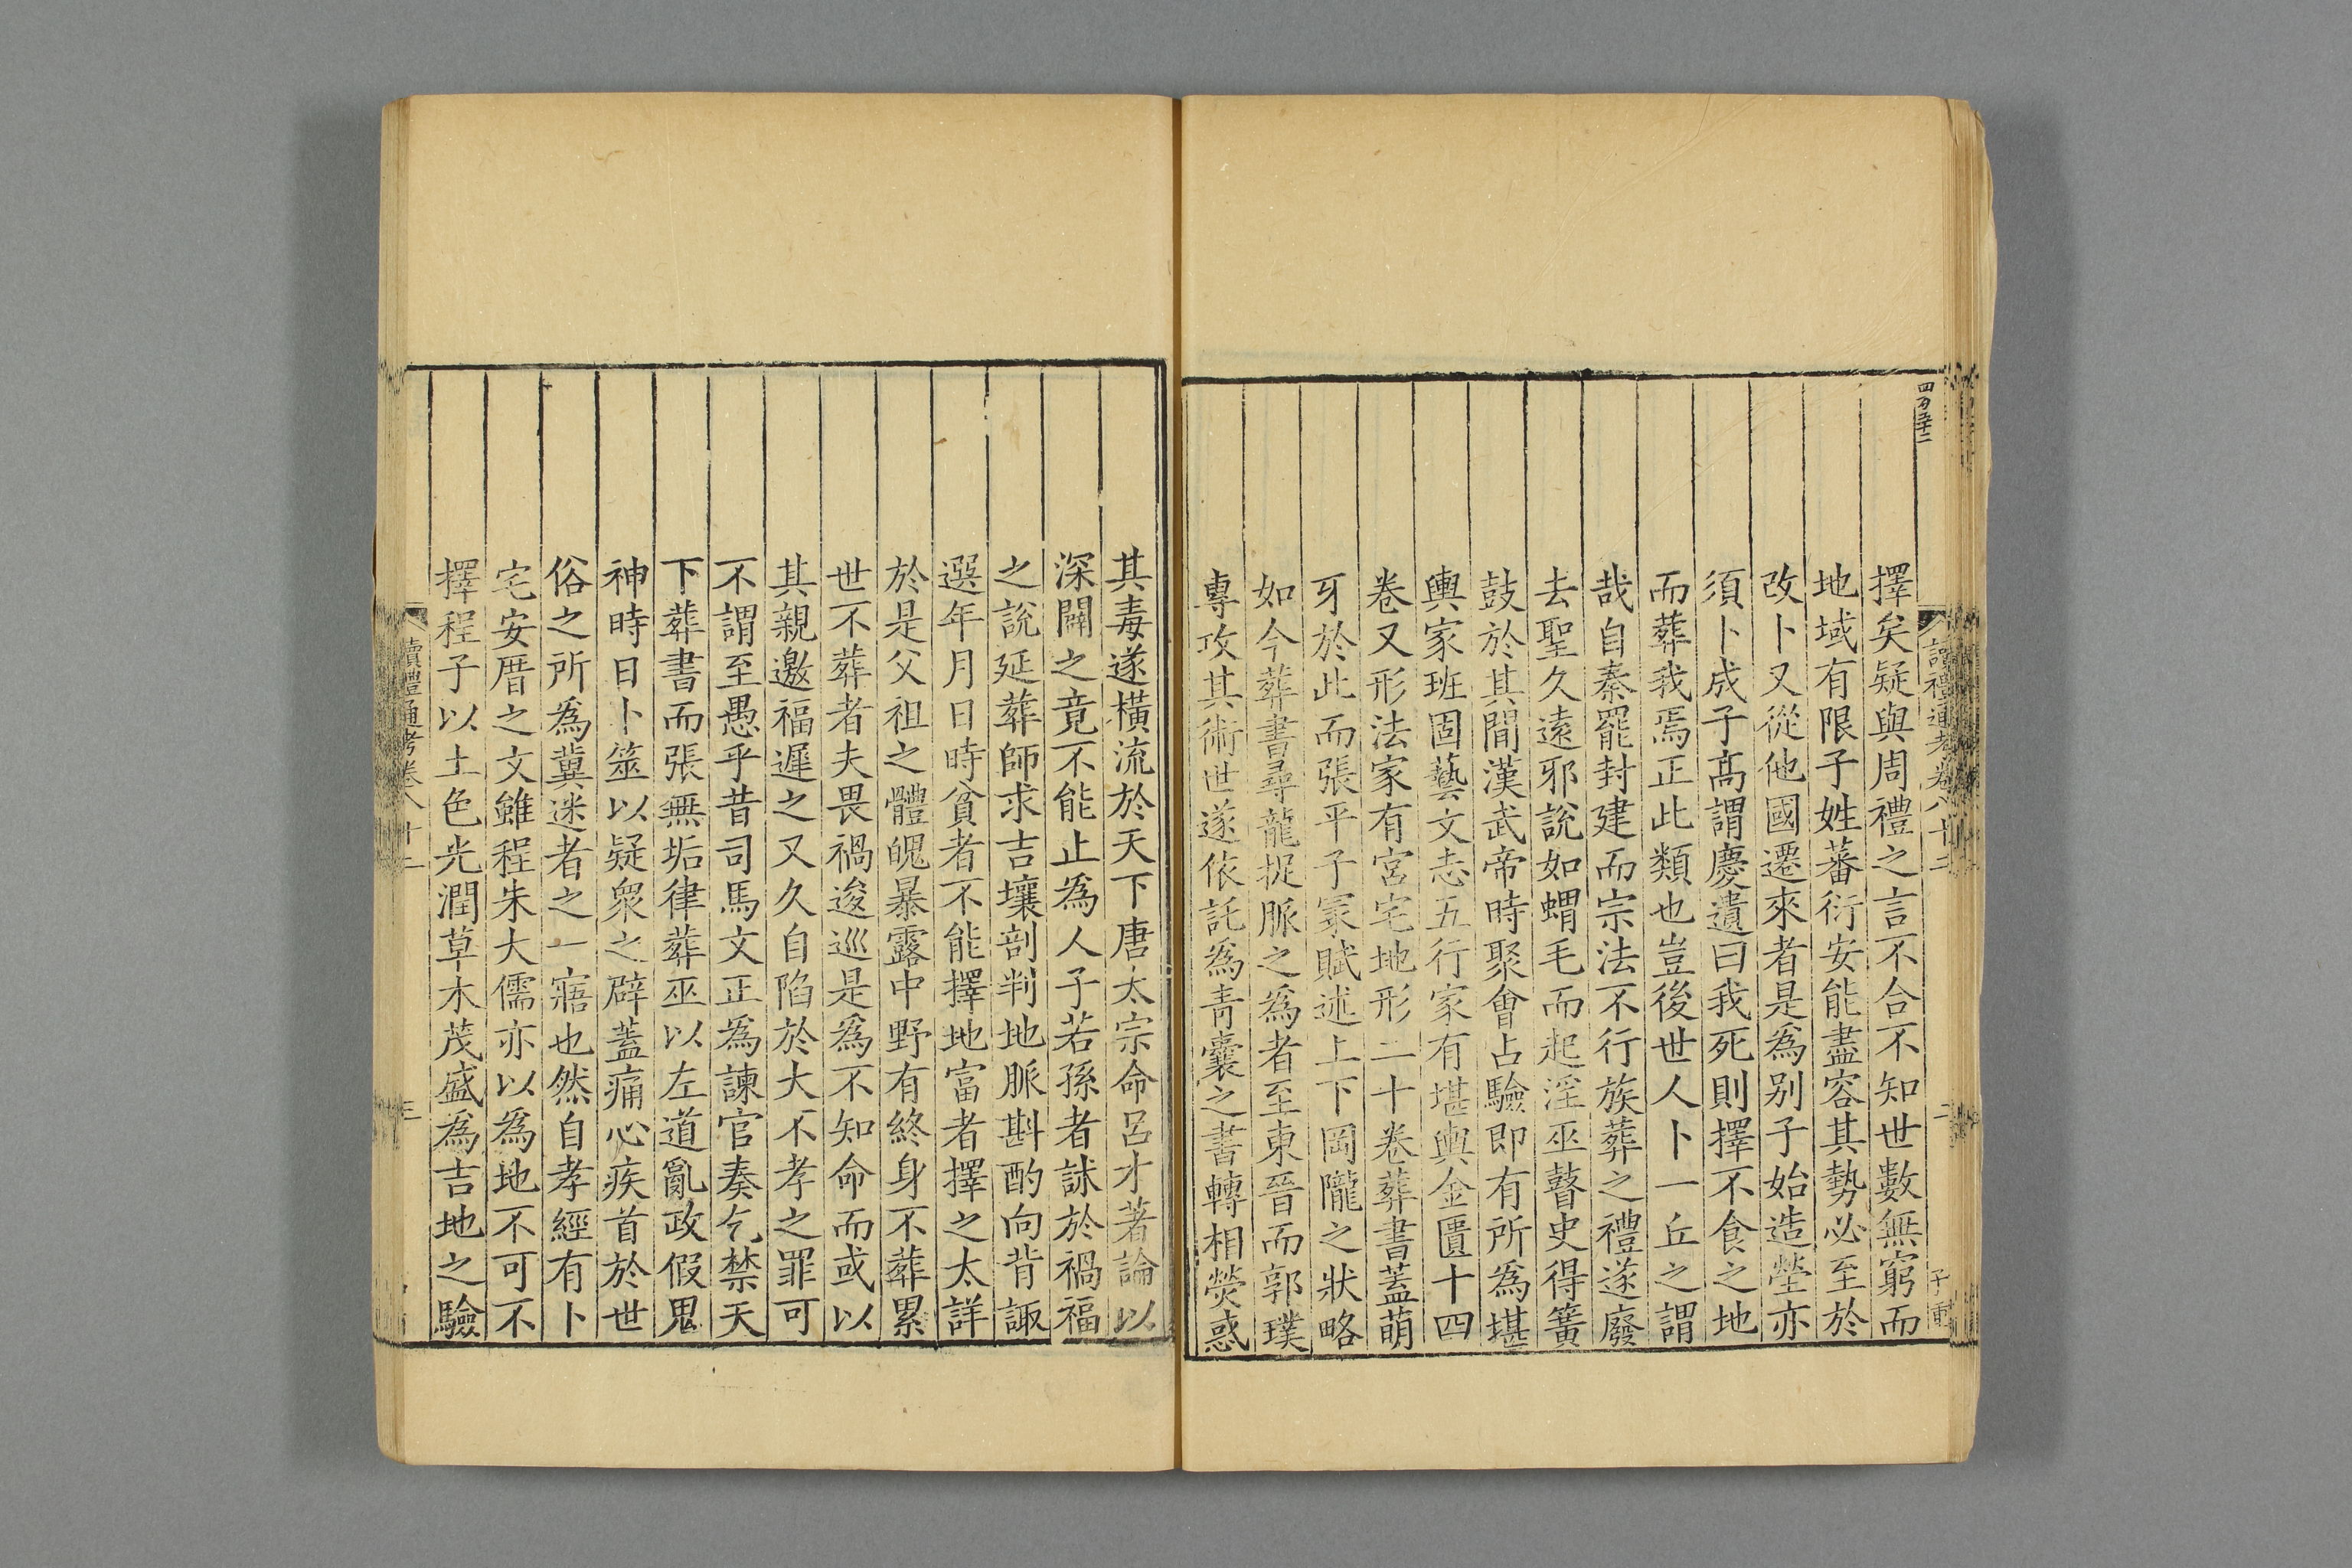 讀禮通考卷八十二
二
擇矣疑與周禮之言不合不知世數無窮而
地域有限子姓蕃衍安能盡容其勢必至於
改卜又從他國遷來者是爲别子始造塋亦
須卜成子高謂慶遺曰我死則擇不食之地
而葬我焉正此類也豈後世人卜一丘之謂
哉自秦罷封建而宗法不行族葬之禮遂廢
去聖久遠邪說如蝟毛而起淫巫瞽史得簧
鼓於其間漢武帝時聚會占驗即有所爲堪
輿家班固藝文志五行家有堪輿金匱十四
卷又形法家有宮宅地形二十卷葬書蓋萌
牙於此而張平子冢賦述上下岡隴之狀略
如今葬書尋龍捉脈之爲者至東晉而郭璞
專攻其術世遂依託爲青囊之書轉相熒惑
其毒遂橫流於天下唐太宗命呂才著論以
深闢之竟不能止爲人子若孫者訹於禍福
之說延葬師求吉壤剖判地脈斟酌向背諏
選年月日時貧者不能擇地富者擇之太詳
於是父祖之體魄暴露中野有終身不葬累
世不葬者夫畏禍逡巡是爲不知命而或以
其親邀福遲之又久自陷於大不孝之罪可
不謂至愚乎昔司馬文正爲諫官奏乞禁天
下葬書而張無垢律葬巫以左道亂政假鬼
神時日卜筮以疑衆之辟蓋痛心疾首於世
俗之所爲冀迷者之一寤也然自孝經有卜
宅安厝之文雖程朱大儒亦以爲地不可不
擇程子以土色光潤草木茂盛爲吉地之驗
讀禮通考卷八十二
三